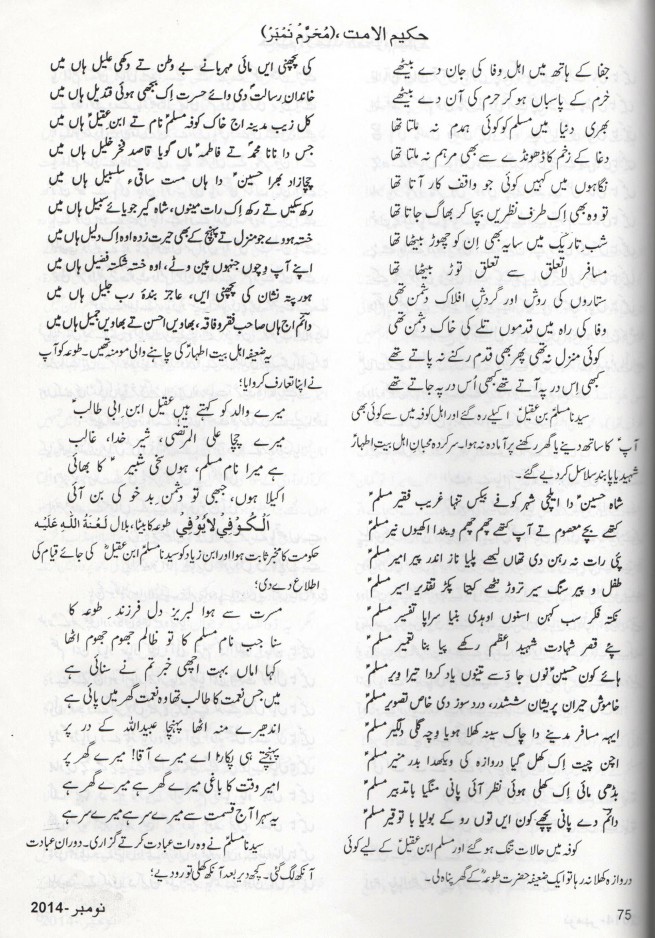 حکیم الامت ،(مُحَرَّمْ نَمْبَرْ)
جفا کے ہاتھ میں اہل وفا کی جان دے بیٹھے
حرم کے پاسباں ہو کر حرم کی آن دے بیٹھے
بھری دنیا میں مسلم کو کوئی ہمدم نہ ملتا تھا
دغا کے زخم کا ڈھونڈے سے بھی مرہم نہ ملتا تھا
نگاہوں میں کہیں کوئی جو واقف کار آتا تھا
تو وہ بھی اِک طرف نظریں بچا کر بھاگ جاتا تھا
شب تاریک میں سایہ بھی اِن کو چھوڑ بیٹھا تھا
مسافر لاتعلق سے تعلق توڑ بیٹھا تھا
ستاروں کی روش اور گردشِ افلاک دشمن تھی
وفا کی راہ میں قدموں تلے کی خاک دشمن تھی
کوئی منزل نہ تھی پھر بھی قدم رکنے نہ پاتے تھے
کبھی اِس در پہ آتے تھے کبھی اُس در پہ جاتے تھے
سیدنا مسلمؓ بن عقیلؓ اکیلے رہ گئے اور اہل کوفہ میں سے کوئی بھی
آپؓ کا ساتھ دینے یا گھر رکھنے پر آمادہ نہ ہوا۔ سرکردہ محبان اہل بیت اطہارؓ
شہید یا پابندِ سلاسل کر دیے گئے۔
شاہ حسینؓ دا ایلچی شہر کوفے بیکس تنہا غریب فقیر مسلمؓ
کتھے بچے معصوم تے آپ کتھے چھم چھم ویندا اکھیوں نیر مسلمؓ
پئی رات نہ رہن دی تھاں لبھے پلیا ناز اندر پیر امیر مسلمؓ
طفل و پیر سنگ سیر تروڑ بیٹھے کیتا پکڑ تقدیر اسیر مسلمؓ
تکیہ فکر سب کہن اسنوں اوہدی بنیا سراپا تفسیر مسلمؓ
پئے قصر شہادت شہید اعظم رکھے پیا بنا تعمیر مسلمؓ
ہائے کون حسینؓ نوں جا دَسے تینوں یاد کردا تیرا ویر مسلمؓ
خاموش حیران پریشان ششدر، درد سوز دی خاص تصویر مسلمؓ
ایہہ مسافر مدینے دا چاک سینہ کھلا ہویا وچہ گلی دلگیر مسلمؓ
اچن چیت اِک کھل گیا دروازہ کی ویکھدا بدر منیر مسلمؓ
بڈھی مائی اِک کھلی ہوئی نظر آئی پانی منگیا باتدبیر مسلمؓ
دائمؔ دے پانی پچھے کون ایں توں رو کے بولیا با توقیر مسلمؓ
کوفہ میں حالات تنگ ہو گئے اور مسلم ابن عقیلؓ کے لیے کوئی
دروازہ کھلا نہ رہا تو ایک ضعیفہ حضرت طوعہؓ کے گھر پناہ لی۔
کی پچھنی ایں مائی مہربانے بے وطن تے دکھی علیل ہاں میں
خاندان رسالتؐ دی وائے حسرت اِک بجھی ہوئی قندیل ہاں میں
کل زیب مدینہ اج خاک کوفہ مسلمؓ نام تے ابن عقیلؓ ہاں میں
جس دا نانا محمدؐ تے فاطمہؓ ماں گویا قاصد فخر خلیل ہاں میں
چچازاد بھرا حسینؓ دا ہاں مست ساقیء سلسبیل ہاں میں
رکھ سکیں تے رکھ اِک رات مینوں، شاہ گیر جویائے سبیل ہاں میں
خستہ ہووے جو منزل تے پہنچ کے بھی حیرت زدہ اوہ اِک دلیل ہاں میں
اپنے آپ وچوں جنہوں پین وٹے، اوہ خستہ شکستہ فضیل ہاں میں
ہور پتہ نشان کی پچھنی ایں، عاجز بندۂ رب جلیل ہاں میں
دائمؔ اج ہاں صاحب فقر و فاقہ، بھاویں احسن تے بھاویں جمیل ہاں میں
یہ ضعیفہ اہل بیت اطہارؓ کی چاہنے والی مومنہ تھیں۔ طوعہ کو آپ
نے اپنا تعارف کروایا؛
میرے والد کو کہتے ہیں عقیل ابن ابی طالب
میرے چچا علی المرتضی، شیر خدا، غالب
ہے میرا نام مسلم، ہوں سخی شبیرؓ کا بھائی
اکیلا ہوں، جبھی تو دشمن بد خو کی بن آئی
اَلْکُوْفِیْ لَایُوْفِیْ طوعہ کا بیٹا، بلال لَعْنَۃُ اللّٰہِ عَلَیْہِ
حکومت کا مخبر ثابت ہوا اور ابن زیاد کو سیدنا مسلمؓ ابن عقیلؓ کی جائے قیام کی
اطلاع دے دی؛
مسرت سے ہوا لبریز دل فرزند طوعہ کا
سنا جب نام مسلم کا تو ظالم جھوم جھوم اٹھا
کہا اماں بہت اچھی خبر تم نے سنائی ہے
میں جس نعمت کا طالب تھا وہ نعمت گھر میں پائی ہے
اندھیرے منہ اٹھا پہنچا عبیداللہ کے در پر
پہنچتے ہی پکارا اے میرے آقا! میرے گھر پر
امیر وقت کا باغی میرے گھر ہے میرے گھر ہے
یہ سہرا آج قسمت سے میرے سر ہے میرے سر ہے
سیدنا مسلمؓ نے وہ رات عبادت کرتے گزاری۔ دوران عبادت
آنکھ لگ گئی۔ کچھ دیر بعد آنکھ کھلی تو رو دیے؛
75
نومبر -2014